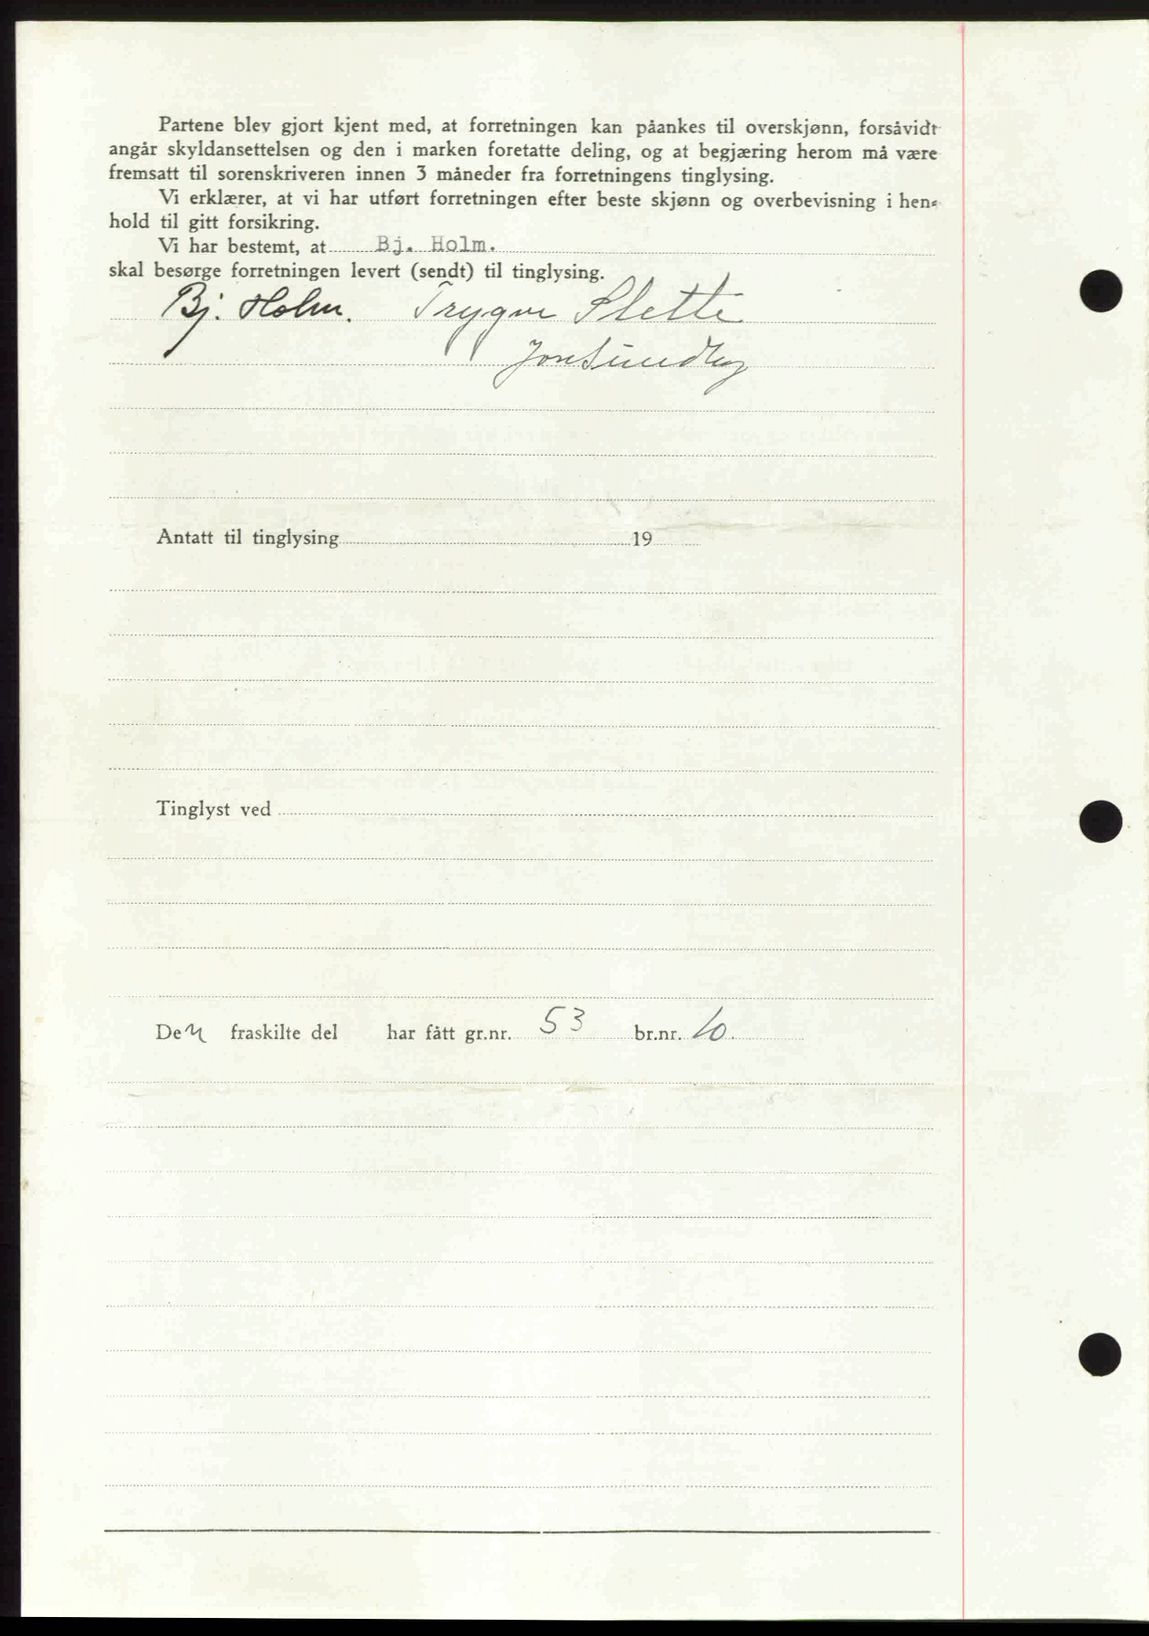 Partene blev gjort kjent med, at forretningen kan påankes til overskjønn, forsåvidt
angår skyldansettelsen og den i marken foretatte deling, og at begjæring herom må være
fremsatt til sorenskriveren innen 3 måneder fra forretningens tinglysing.
Vi erklærer, at vi har utført forretningen efter beste skjønn og overbevisning i hen-
hold til gitt forsikring.
Vi har bestemt, at Bj. Holm.
skal besørge forretningen levert (sendt) til tinglysing.
Bj. Holm. Trygve Slette
Jon Sundby
Antatt til tinglysing 19
Tinglyst ved
Den fraskilte del har fått gr.nr. 53 br.nr. 10.